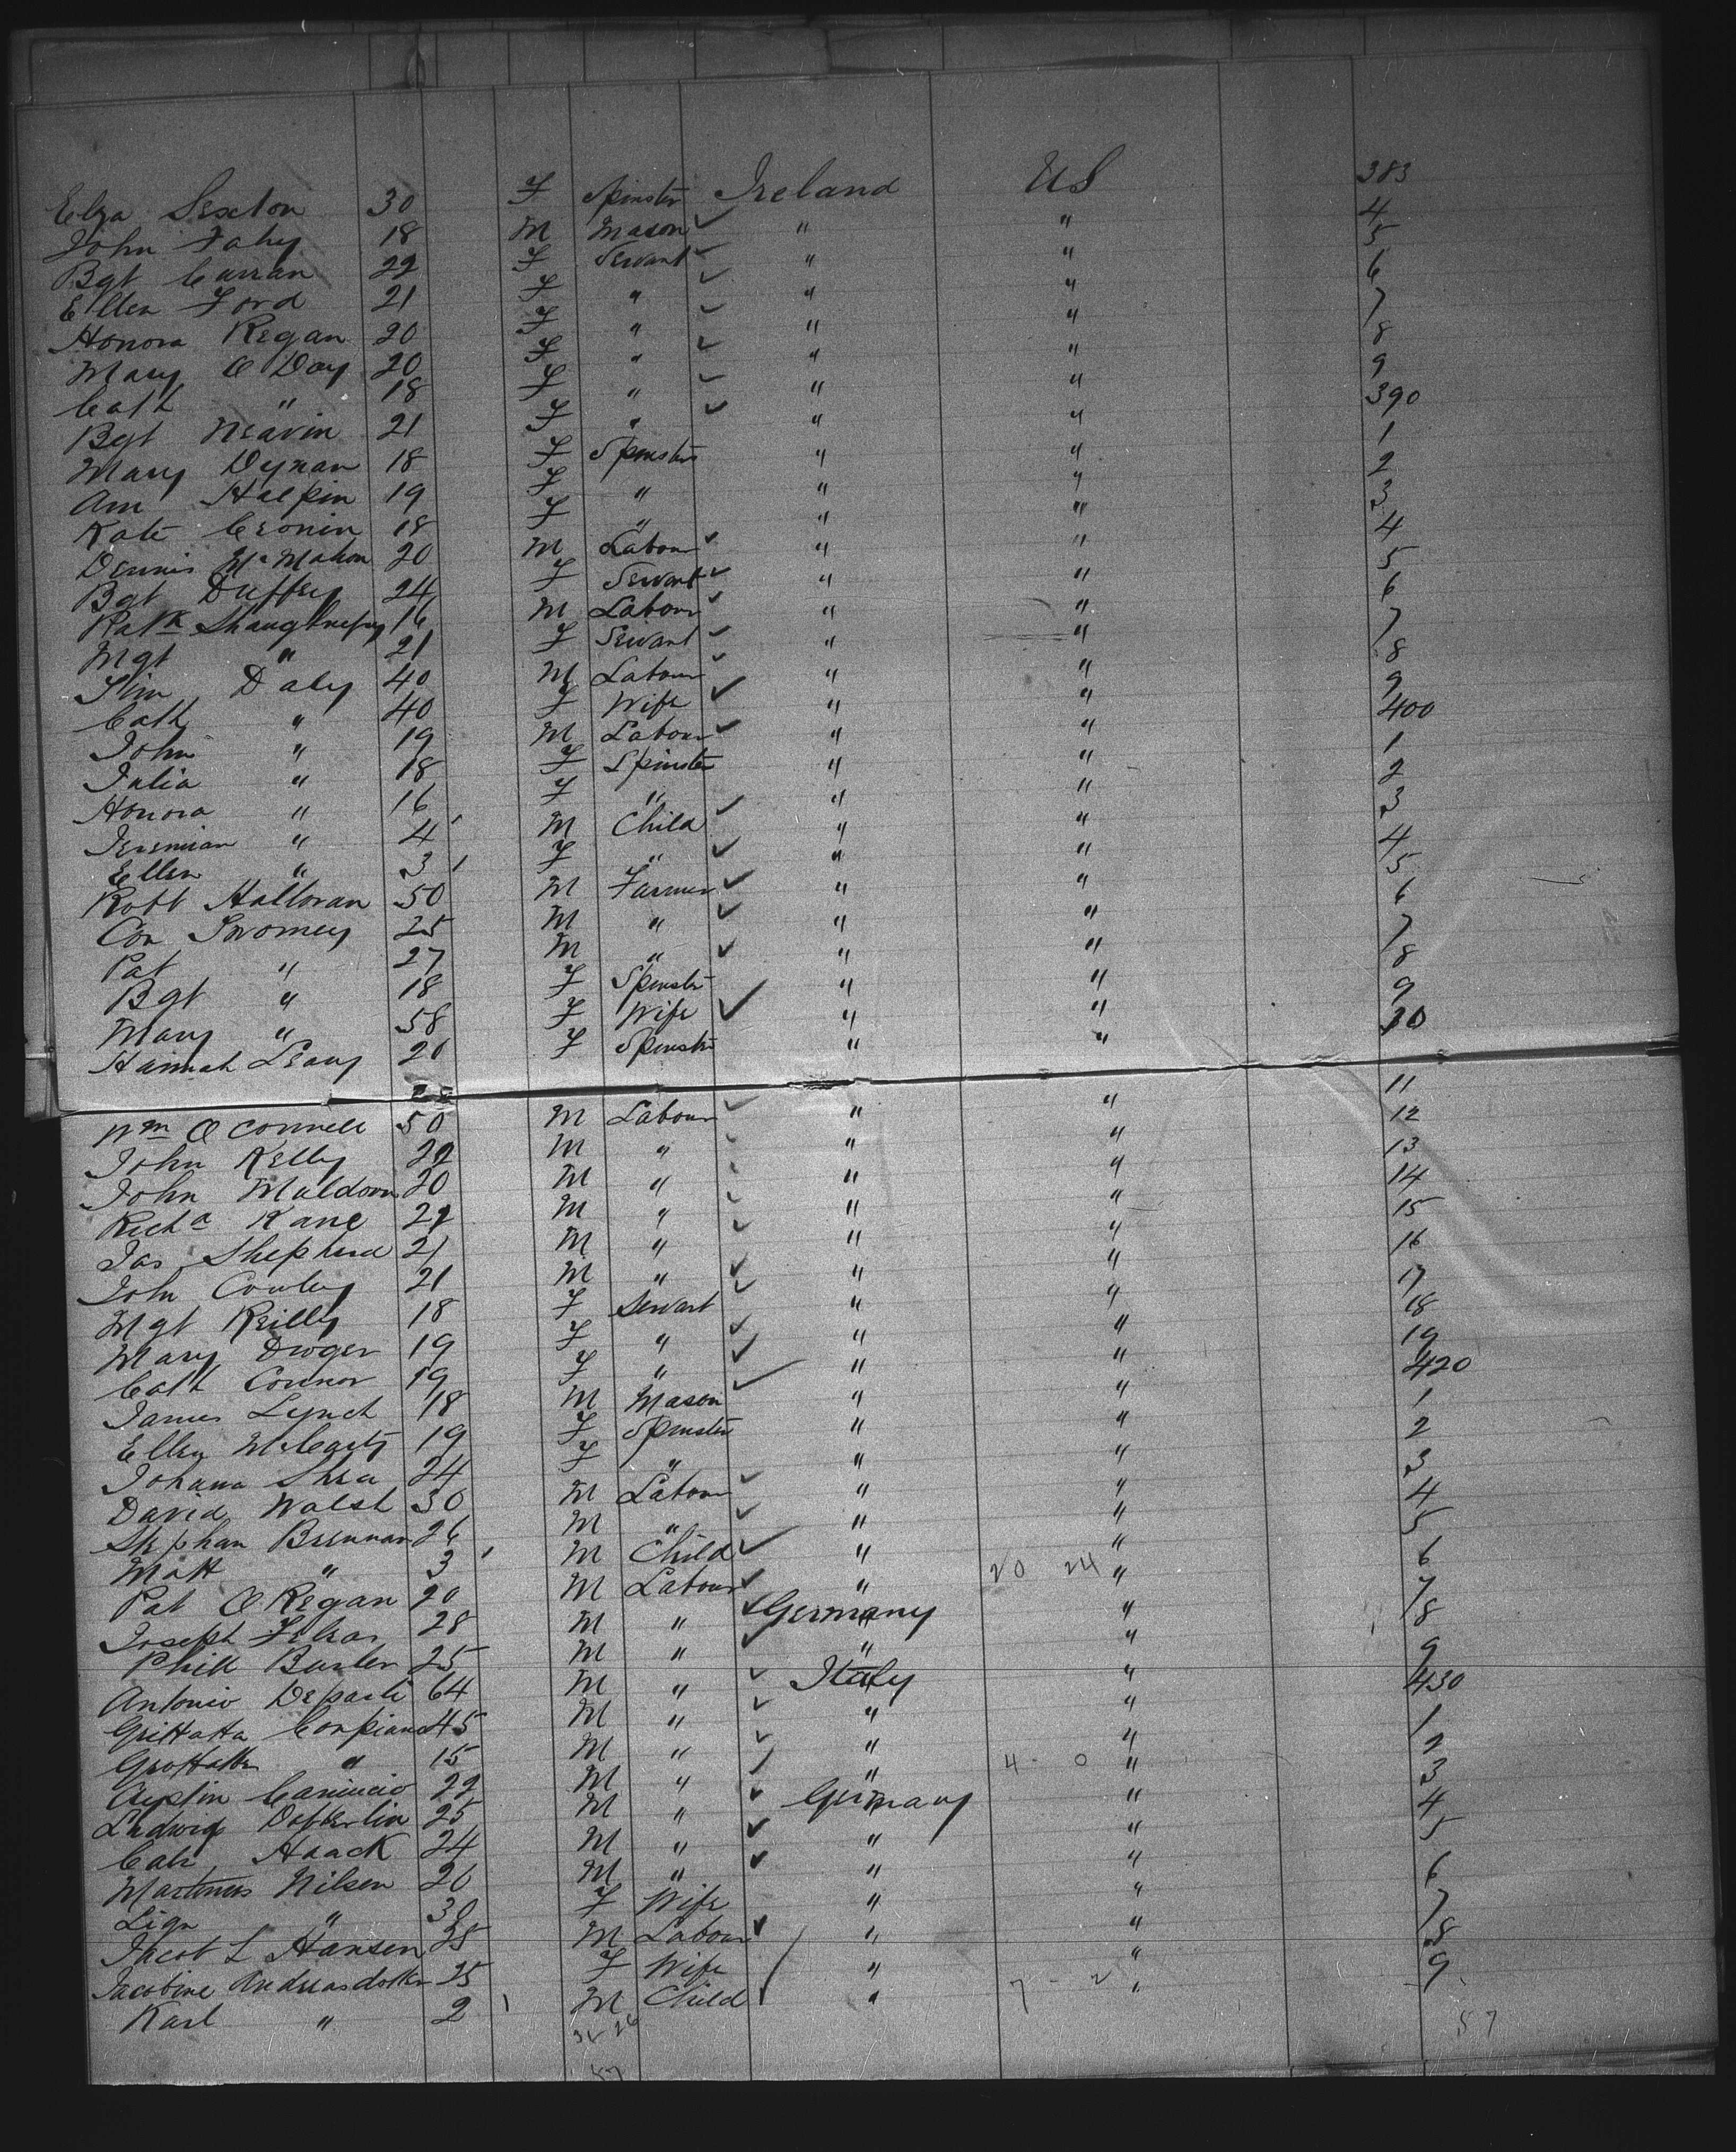 Elza Sexton 30 F Spinster Ireland US 383
John Fahy 18 M Mason " " 4
Bgt Curran 22 F Servant " " 5
Ellen Ford 21 F " " " 6
Honora Regan 20 F " " " 7
Mary O Day 20 F " " " 8
Cath " 18 F " " " 9
Bgt Neavin 21 F " " " 390
Mary Dynan 18 F Spinster " " 1
Ann Halpin 19 F " " " 2
Kate Cronin 18 F " " " 3
Dennis McMahon 20 M Labour " " 4
Bgt Duffey 24 F Servant " " 5
Patk Shaughnessy 16 M Labour " " 6
Mgt " 21 F Servant " " 7
Tim Daly 40 M Labour " " 8
Cath " 40 F Wife " " 9
John " 19 M Labour " " 400
Julia " 18 F Spinster " " 1
Honora " 16 F " " " 2
Jeremian " 4 M Child " " 3
Ellen " 3 F " " " 4
Robt Halloran 50 M Farmer " " 5
Con Twomey 25 M " " " 6
Pat " 27 M " " " 7
Bgt " 18 F Spinster " " 8
Mary " 58 F Wife " " 9
Hannah Leary 20 F Spinster " " 10
Wm O Connell 50 M Labour " " 11
John Kelly 22 M " " " 12
John Muldoon 20 M " " " 13
Richd Kane 22 M " " " 14
Jas Shepherd 21 M " " " 15
John Conley 21 M " " " 16
Mgt Reilly 18 F Servant " " 17
Mary Dwyer 19 F " " " 18
Cath Connor 19 F " " " 19
James Lynch 18 M Mason " " 420
Ellen McCarty 19 F Spinster " " 1
Johana Shea 24 F " " " 2
David Walsh 30 M Labour " " 3
Stephan Brennan 26 M " " " 4
Matt " 3 M Child " " 5
Pat O Regan 20 M Labour " 20 24 " 6
Joseph 28 M " Germany " 7
Phill Butler 25 M " " " 8
Antonio 64 M " Italy " 9
45 M " " " 430
" 15 M " " " 1
22 M " " 4 - 0 " 2
Ludwig 25 M " Germany " 3
Haack 24 M " " " 4
Martinus Nilsen 20 M " " " 5
" 30 F Wife " " 6
Jacob L Hansen 35 M Labour " " 7
Jacobine Andreasdotter 25 F Wife " " 8
Karl " 2 M Child " 7 - 2 " 9
57